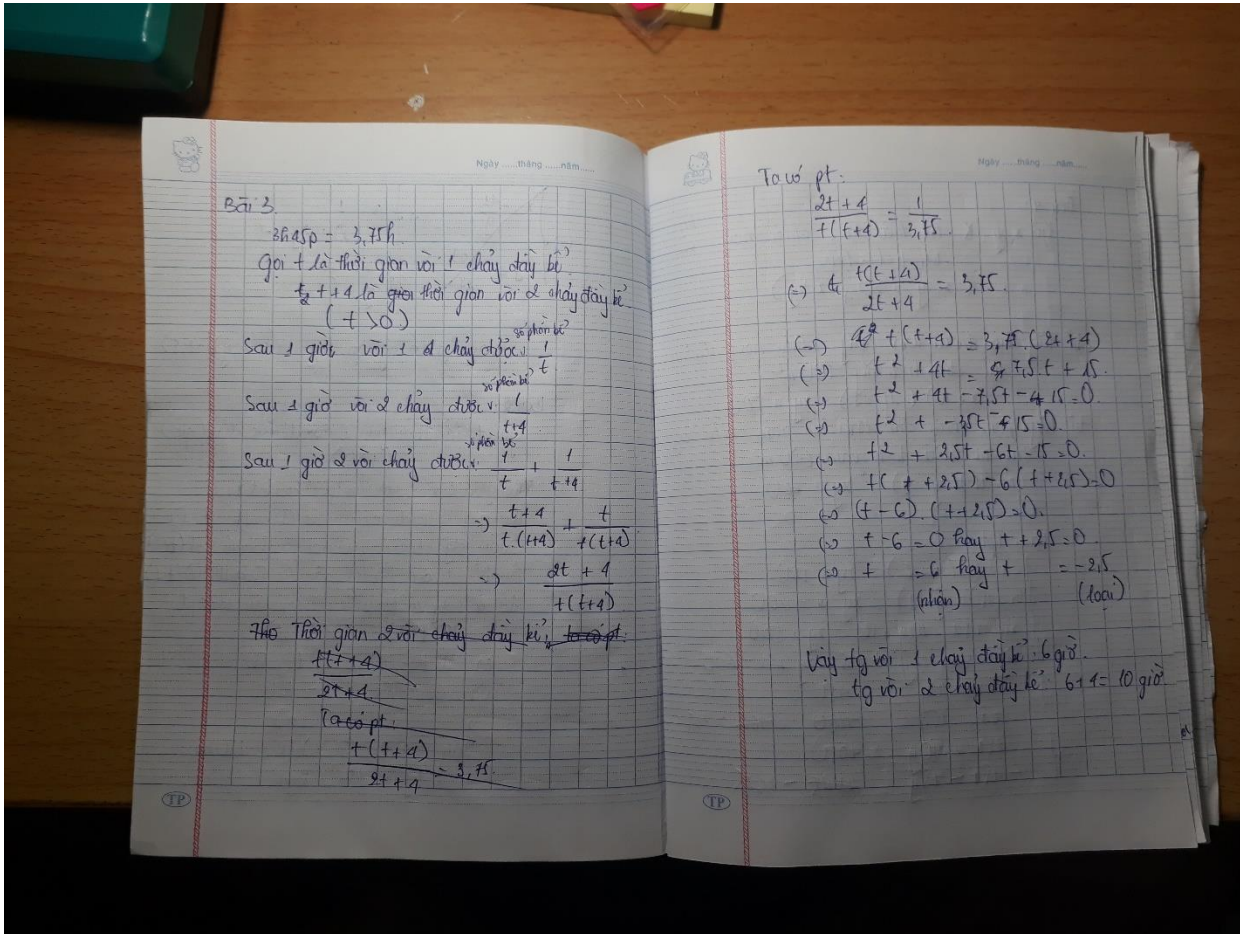 Ngày ......tháng ......năm ......
Bài 3.
3h45p = 3,75h.
Gọi t là thời gian vòi 1 chảy đầy bể.
t + 4 là thời gian vòi 2 chảy đầy bể
( t > 0 )
Sau 1 giờ vòi 1 chảy được số phần bể 1/t
Sau 1 giờ vòi 2 chảy được số phần bể 1/(t+4)
Sau 1 giờ 2 vòi chảy được số phần bể 1/t + 1/(t+4)
=> (t+4)/(t.(t+4)) + t/(t(t+4))
=> (2t + 4)/(t(t+4))
Thời gian 2 vòi chảy đầy bể, ta có pt:
t(t+4)/(2t+4)
Ta có pt:
t(t+4)/(2t+4) = 3,75
TP
Ngày ......tháng ......năm ......
Ta có pt:
(2t + 4)/(t(t+4)) = 1/3,75
(=) t(t+4)/(2t+4) = 3,75.
(=) t(t+4) = 3,75.(2t+4)
(=) t² + 4t = 7,5t + 15.
(=) t² + 4t - 7,5t - 15 = 0.
(=) t² + -3,5t - 15 = 0.
(=) t² + 2,5t - 6t - 15 = 0.
(=) t( t + 2,5) - 6(t + 2,5) = 0
(=) (t - 6).(t + 2,5) = 0.
(=) t - 6 = 0 hay t + 2,5 = 0
(=) t = 6 hay t = -2,5
(nhận) (loại)
Vậy tg vòi 1 chảy đầy bể: 6 giờ.
tg vòi 2 chảy đầy bể 6+4 = 10 giờ
TP